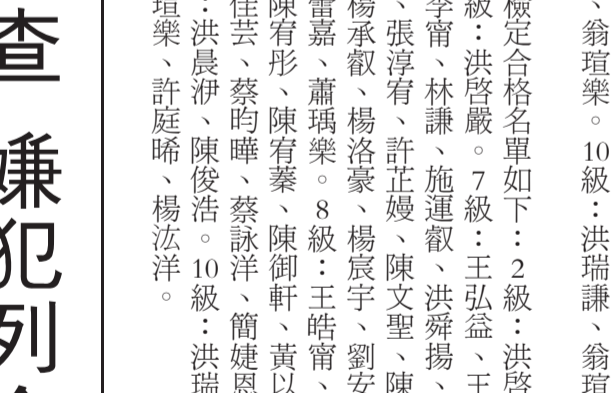 、翁瑄樂。10級：洪瑞謙、翁瑄
檢定合格名單如下：2級：洪啓
級：洪啓嚴。7級：王弘益、王
李甯、林謙、施運叡、洪舜揚、
、張淳宥、許芷嫚、陳文聖、陳
楊承叡、楊洛豪、楊宸宇、劉安
蕾嘉、蕭瑀樂。8級：王皓甯、
陳宥彤、陳宥蓁、陳御軒、黃以
佳芸、蔡昀曄、蔡詠洋、簡婕恩
：洪晨洢、陳俊浩。10級：洪瑞
瑄樂、許庭晞、楊汯洋。
查 嫌犯列